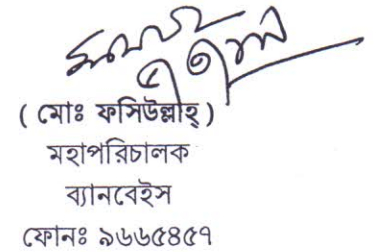 ( মোঃ ফসিউল্লাহ্ )
মহাপরিচালক
ব্যানবেইস
ফোনঃ ৯৬৬৫৪৫৭